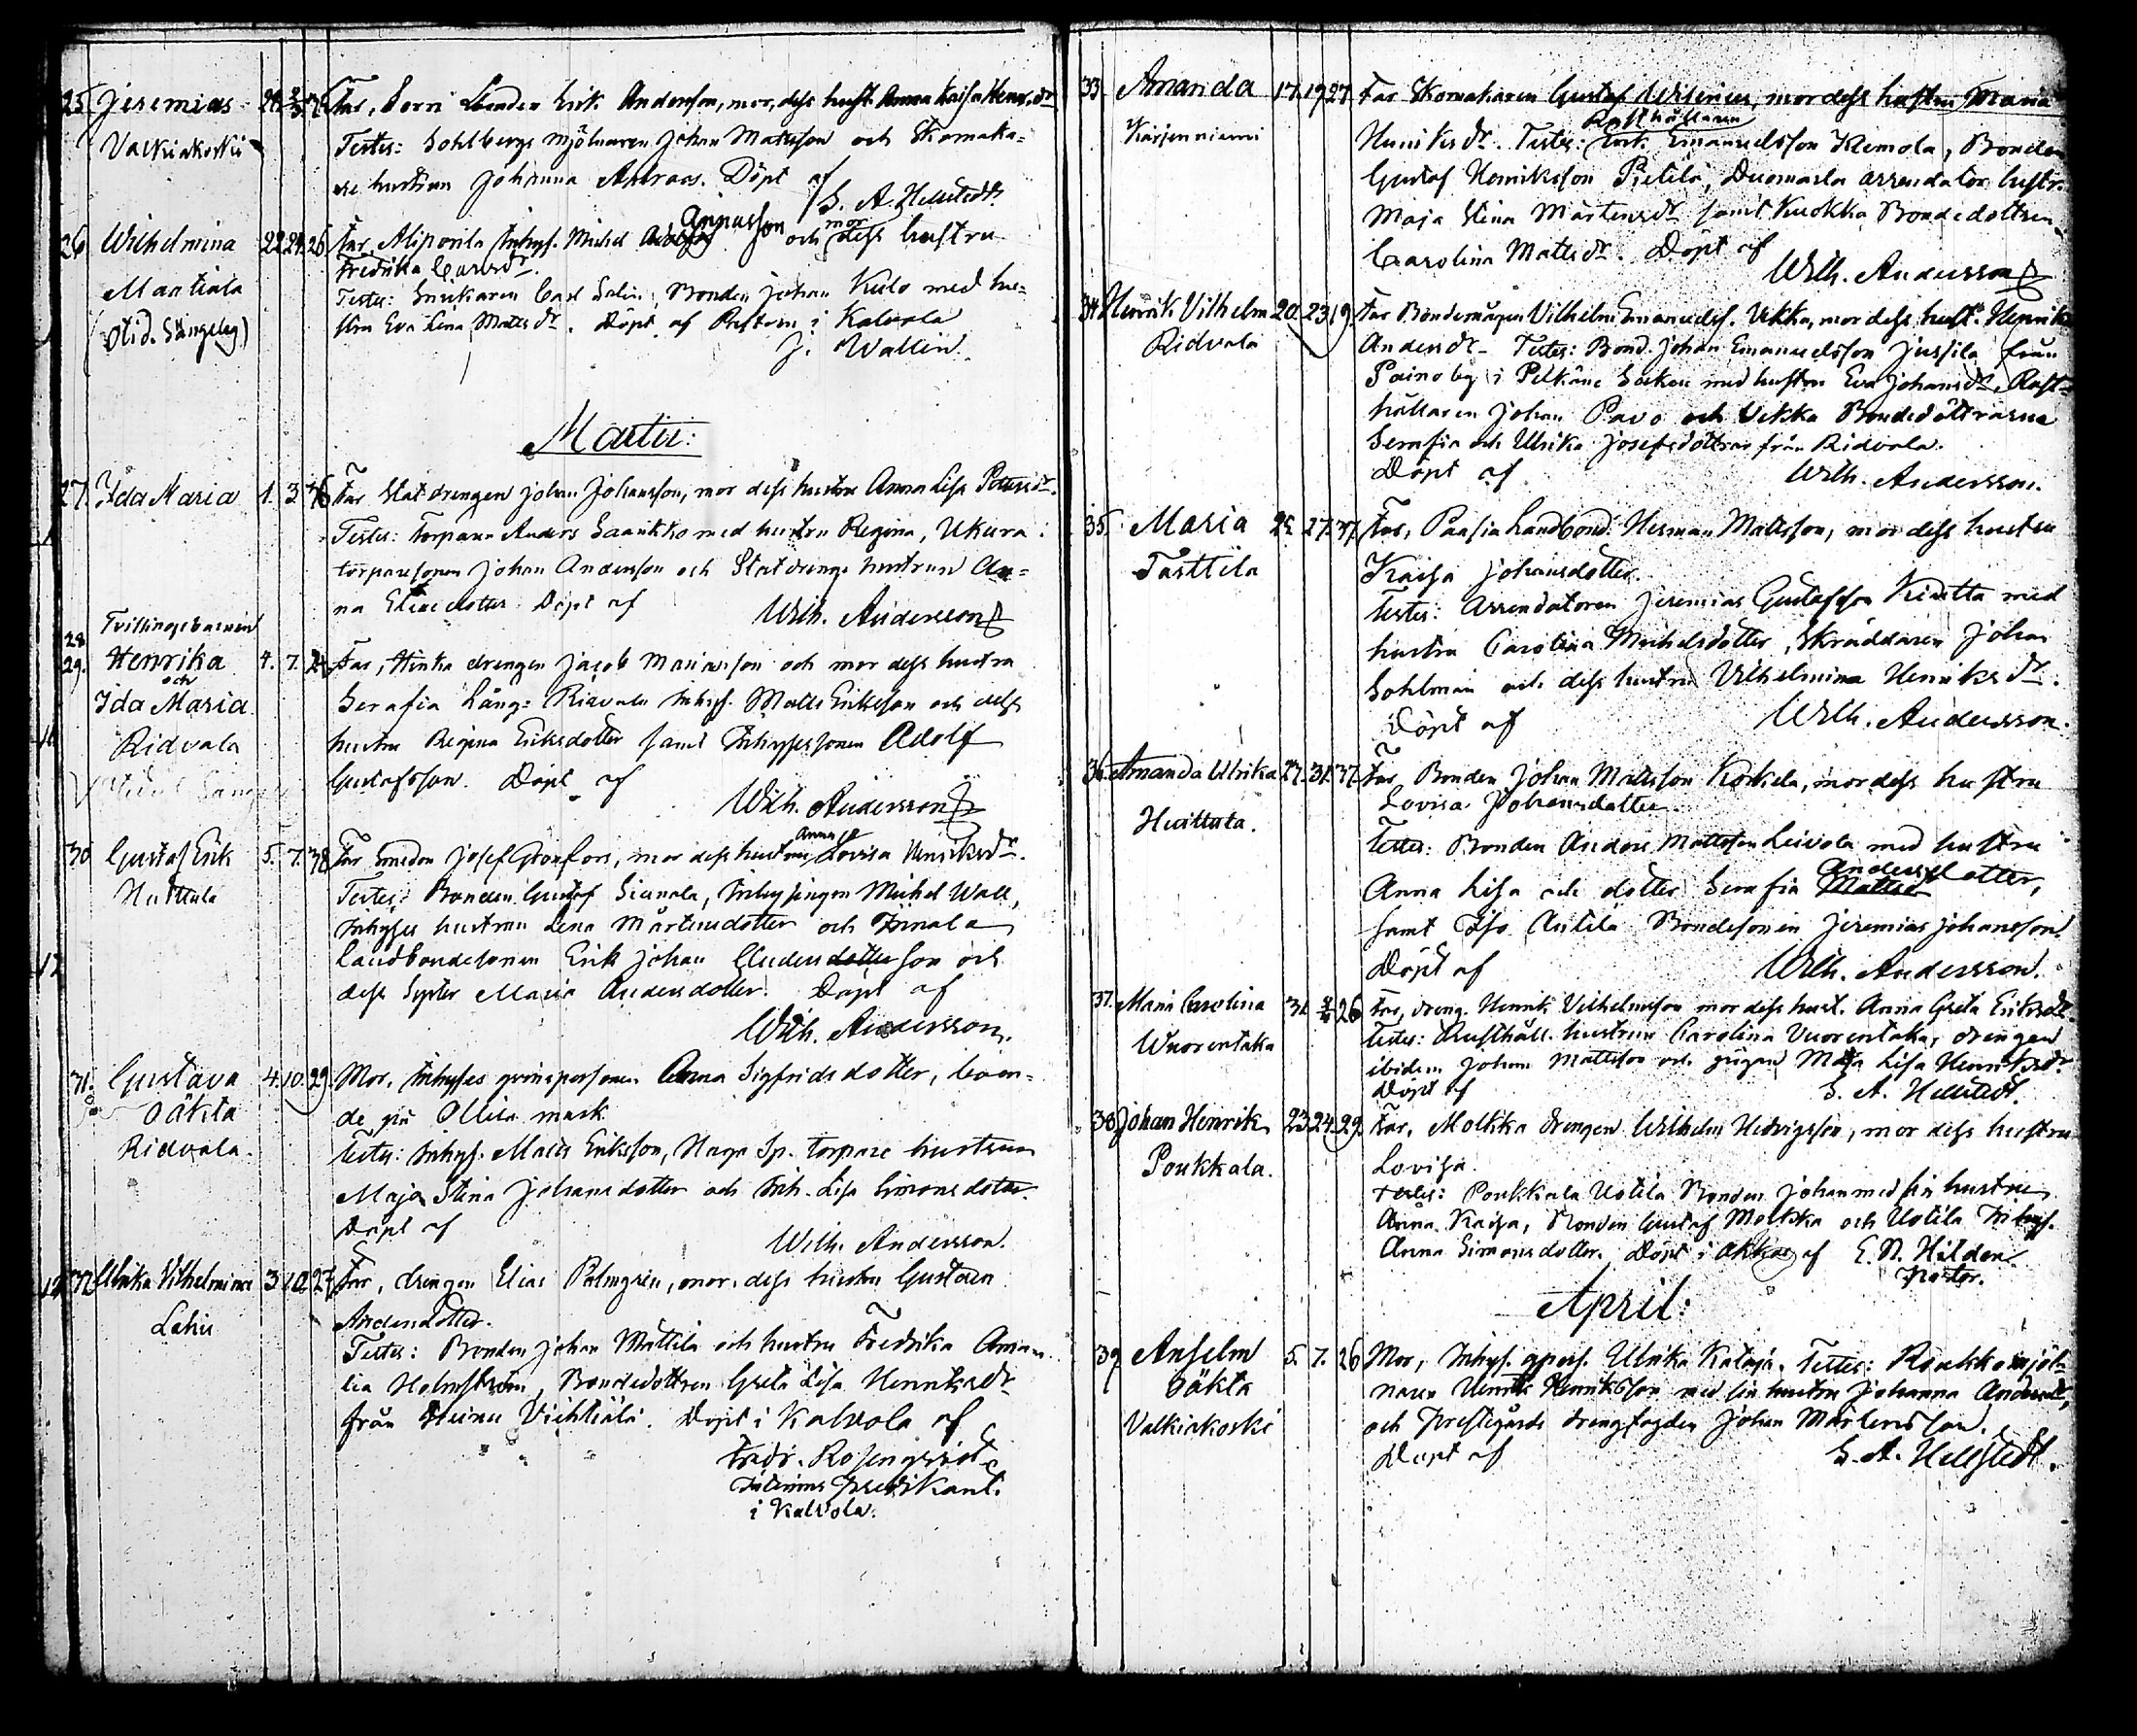 25. Jeremias 28. 2/3 Far, Sorri Bonden Erik Andersson, mor, dess hust. Anna Kaisa Henr.dr
Valkiakoski Testes: Sohlbergs mjölnaren Johan Mattsson och Skomaka=
re hustrun Johanna Döpt af
S. A. Hellstedt.
26 Wilhelmina 22 24. 26 Far Alipovila Inhys. Michel Annasson och mor dess hustru
Fredrika Carlsdr.
Mantiala Testes: Snickaren Carl Salin, Bonden Johan Kulo med hu=
(Otid. Sängelag) stru Eva Lena Mattsdr. Döpt af Pastorn i Kalvola
J. Wallin.
Martii:
27. Ida Maria 1. 3. 36 Far Statdrengen Johan Johansson, mor dess hustru Anna Lisa
Testes: Torparen Anders Saarikko med hustru Regina, Ukura
torparesonen Johan Andersson och Statdrengs hustrun An=
na Eliaedotter Döpt af
Wilh. Andersson
Tvillingebarnen
28
29. Henrika 4. 7. 24 Far, Hinka drengen Jacob Mariaeson och mor dess hustru
och
Ida Maria Serafia Lång: Ridvala Inhys. Matts Eriksson och dess
Ridvala hustru Regina Eriksdotter samt Inhysessonen Adolf
Gustafsson. Döpt af
Wilh. Andersson
30 Gustaf Erik 5. 7. 38 Far Smeden Josef Granfors, mor dess hustru Anna Lovisa Henriksdr.
Huittula Testes: Bonden Gustaf Sianala, Inhysingen Michel Wall,
Inhyses hustrun Lena Mårtensdotter och
Landbondesonen Erik Johan Andersdotter son och
dess Syster Maria Andersdotter. Döpt af
Wilh. Andersson.
31. Gustava 4. 10. 29. Mor, Inhyses qvinspersonen Anna Sigfridsdotter, boen=
Oäkta de på Ollila mark
Ridvala. Testes: Inhys. Matts Eriksson, Naga Sp. torpare hustrun
Maja Stina Johansdotter och Inh. Lisa Simonsdoter.
Döpt af
Wilh. Andersson.
Ulrika Vilhelmina 3. 10. 27 Far, drengen Elias Palmgrén, mor. dess hustru Gustava
Lahis Andersdotter.
Testes: Bonden Johan Mattila och hustru Fredrika Ama
lia Holmström, Bondedottren Greta Lisa Henriksdr
från Heinu Vichtiälä. Döpt i Kalvola af
Fredr. Rosenqvist
predikant.
i Kalvola.
33. Amanda 17. 19 27. Far Skomakaren Gustaf Wilenius, mor dess hustru Maria
Rusthållaren
Kärjenniemi Henriksdr. Testes: Erik Emanuelsson Klemola, Bonden
Gustaf Henriksson Pietilä, arrendator hustr.
Maja Stina Mårtensdr samt Kuokka Bondedottren
Carolina Mattsdr. Döpt af
Wilh. Andersson
34. Henrik Vilhelm 20. 23. 19. Far Bondemågen Vilhelm Emanuelss. Ukka, mor dess hustr. Henrika
Ridvala Andersdr. Testes: Bond. Johan Emanuelsson Jussila från
Painoby i Pelkäne Socken med hustru Eva Johansdr. Rust=
hållaren Johan Pavo och Vekka Bondedöttrarna
Serafia och Ulrika Josefsdöttrar från Ridvala.
Döpt af
Wilh. Andersson.
35. Maria 25. 27. 37. Far, Paasia Landbond. Herman Mattsson, mor dess hustru
Tarttila Kaisa Johansdotter.
Testes: Arrendatoren Jeremias Gustafsson med
hustru Carolina Michelsdotter, Skräddaren Johan
Sohlman och dess hustru Vilhelmina Henriksdr.
Döpt af
Wilh. Andersson.
36. Amanda Ulrika 27. 31. 37. Far Bonden Johan Mattsson Korkela, mor dess hustru
Lovisa Johansdotter.
Huittula. Testes: Bonden Anders Mattsson Leivola med hustru
Anna Lisa och dotter Serafia Andersdotter,
samt Iso Antila Bondesonen Jeremias Johansson.
Döpt af
Wilh. Andersson.
37. Maria Carolina 31. 26 Far, dreng. Henrik Vilhelmsson mor dess hust. Anna Greta Eriksdr.
Wuorentaka Testes: Rusthåll. hustrun Carolina Vuorentaka, drengen
ibidem Johan Mattsson och pigan Maja Lisa Henriksdr
Döpt af
S. A. Hellstedt.
38. Johan Henrik 23 24. 29. Far, Molkka drengen Wilhelm Hedvigsson, mor dess hustru
Poukkala. Lovisa.
Testes: Poukkala Uotila Bonden Johan med sin hustru
Anna Kaisa, Bonden Gustaf Molkka och Uotila Inhys.
Anna Simonsdotter. Döpt i Akkas af E. N. Hilden
Pastor.
April:
39 Anselm 5. 7. 26 Mor, Inhys. qpers. Ulrika Kataja. Testes: Roukko mjöl=
Oäkta naren Henrik Henriksson med sin hustru Johanna Andersdr,
Valkiakoski och Prestegårds drengfogden Johan Mårtensson.
Döpt af
S. A. Hellstedt.